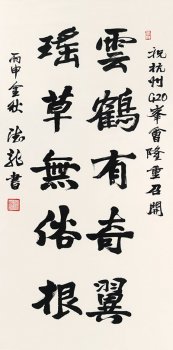 祝杭州G20峯會隆重召開
雲鶴有奇翼
瑤草無俗根
丙申金秋
德龍書